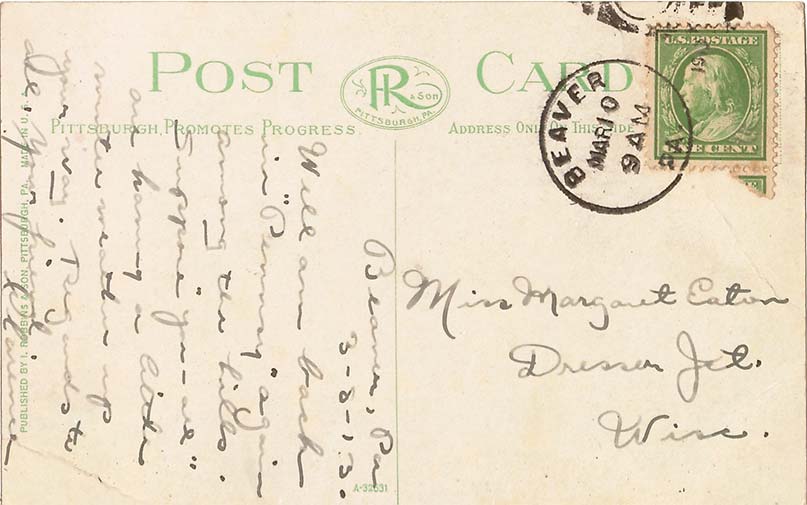 POST CARD
R & SON
PITTSBURGH, PA.
PITTSBURGH, PROMOTES PROGRESS.
ADDRESS ONLY ON THIS SIDE
BEAVER
MAR 10
9 AM
PA.
U.S. POSTAGE
ONE CENT
Beaver, Pa
3-8-13.
Well am back
in "Pennsy" again
among the hills.
Suppose "you-all"
are having a little
winter weather up
your way. Regards to
all. Your friend
Clarence
Miss Margaret Eaton
Dresser Jct.
Wisc.
PUBLISHED BY I. ROBBINS & SON, PITTSBURGH, PA. MADE IN U.S.A.
A-32631